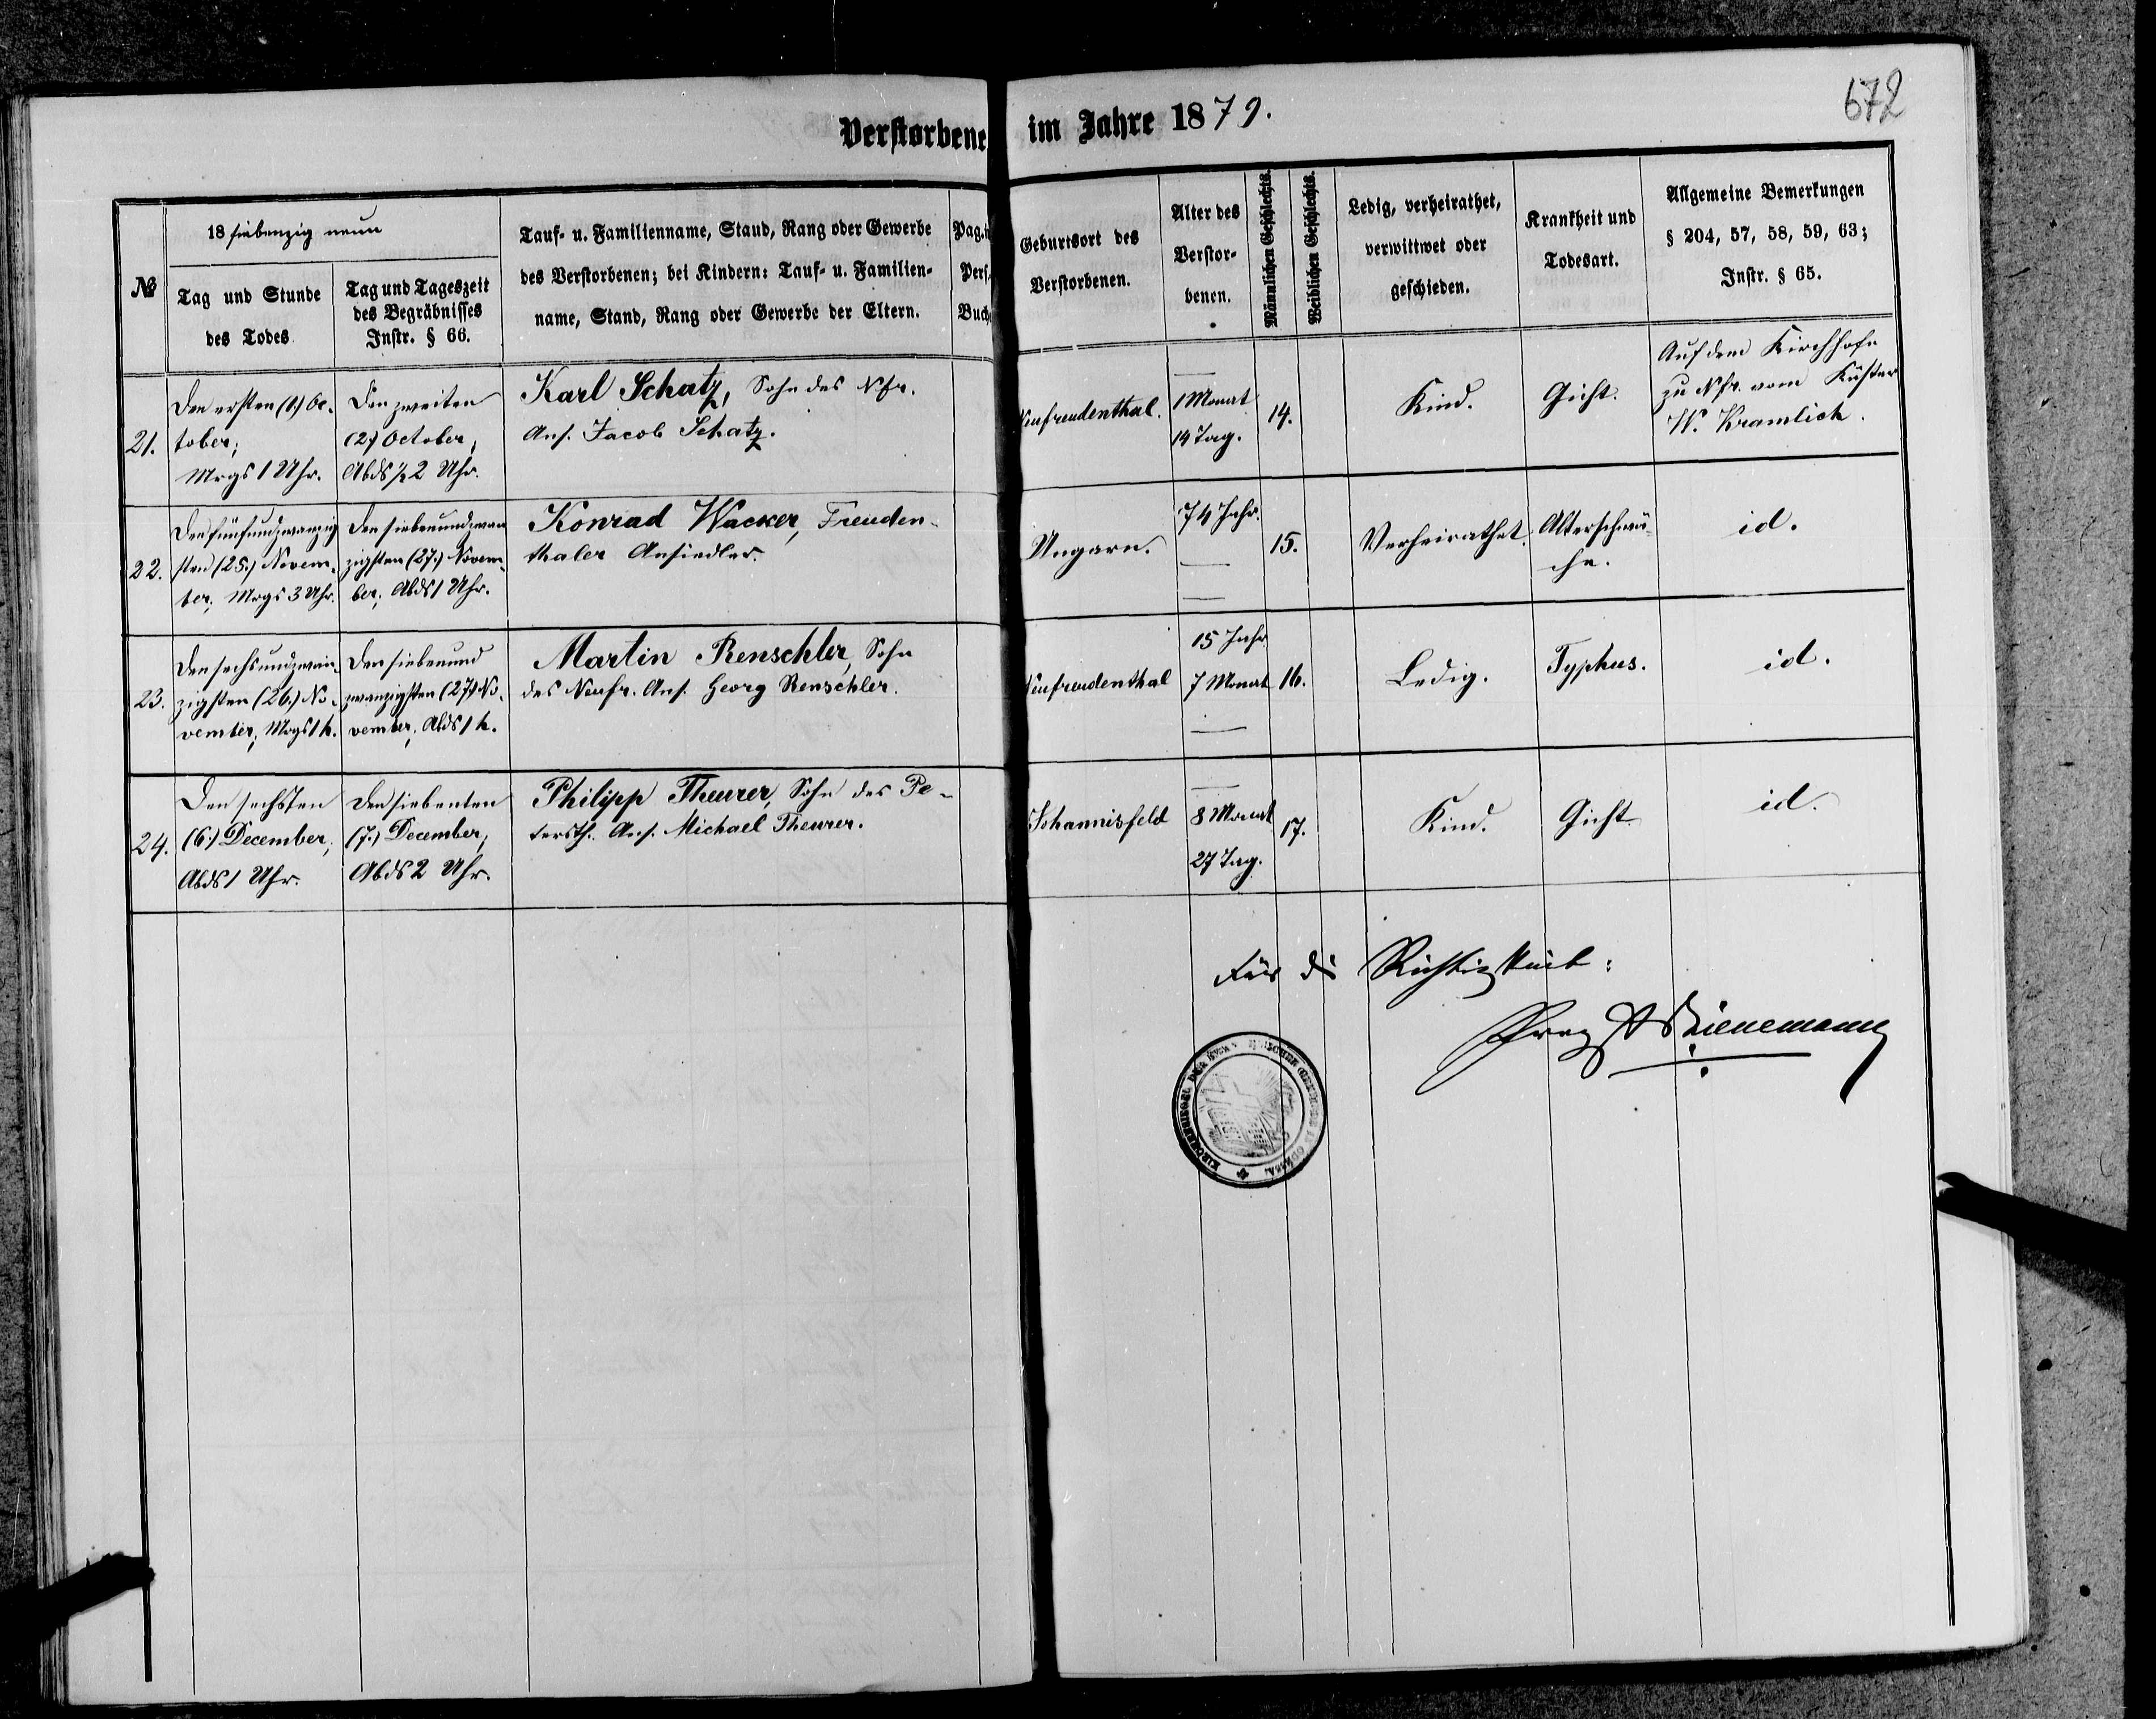 672
Verstorbene im Jahre 1879.
№
18 siebenzig neun
Tag und Stunde
des Todes
Tag und Tageszeit
des Begräbnisses
Instr. § 66.
Tauf- u. Familienname, Stand, Rang oder Gewerbe
des Verstorbenen; bei Kindern: Tauf- u. Familien-
name, Stand, Rang oder Gewerbe der Eltern.
Pag. i
Pers.
Buch
Geburtsort des
Verstorbenen.
Alter des
Verstor-
benen.
Männlichen Geschlechts.
Weiblichen Geschlechts.
Ledig, verheirathet,
verwittwet oder
geschieden.
Krankheit und
Todesart.
Allgemeine Bemerkungen
§ 204, 57, 58, 59, 63;
Instr. § 65.
21.
Den ersten (1.) Oc-
tober;
Mrgs 1 Uhr.
Den zweiten
(2.) October,
Abds ½ 2 Uhr.
Karl Schatz, Sohn des Nfr.
Ans. Jacob Schatz.
Neufreudenthal.
—
1 Monat
14 Tag.
14.
Kind.
Gicht.
Auf dem Kirchhofe
zu Nfr. vom Küster
W. Kramlich.
22.
Den fünfundzwanzig
sten (25.) Novem-
ber; Mrgs 3 Uhr.
Den siebenundzwan
zigsten (27.) Novem-
ber; Abds 1 Uhr.
Konrad Wacker, Freuden-
thaler Ansiedler.
Ungarn.
74 Jahr.
—
—
15.
Verheirathet.
Alterschwä-
che.
id.
23.
Den sechsundzwan-
zigsten (26.) No-
vember; Mrgs 1 h.
Den siebenund
zwanzigsten (27.) No-
vember; Abds 1 h.
Martin Renschler, Sohn
des Neufr. Ans. Georg Renschler.
Neufreudenthal
15 Jahr
7 Monat
—
16.
Ledig.
Typhus.
id.
24.
Den sechsten
(6.) December;
Abds 1 Uhr.
Den siebenten
(7.) December;
Abds 2 Uhr.
Philipp Theurer, Sohn des Pe-
tersth. Ans. Michael Theurer.
Johannisfeld
—
8 Monat
27 Tag.
17.
Kind.
Gicht.
id.
Für die Richtigkeit:
Bienemann